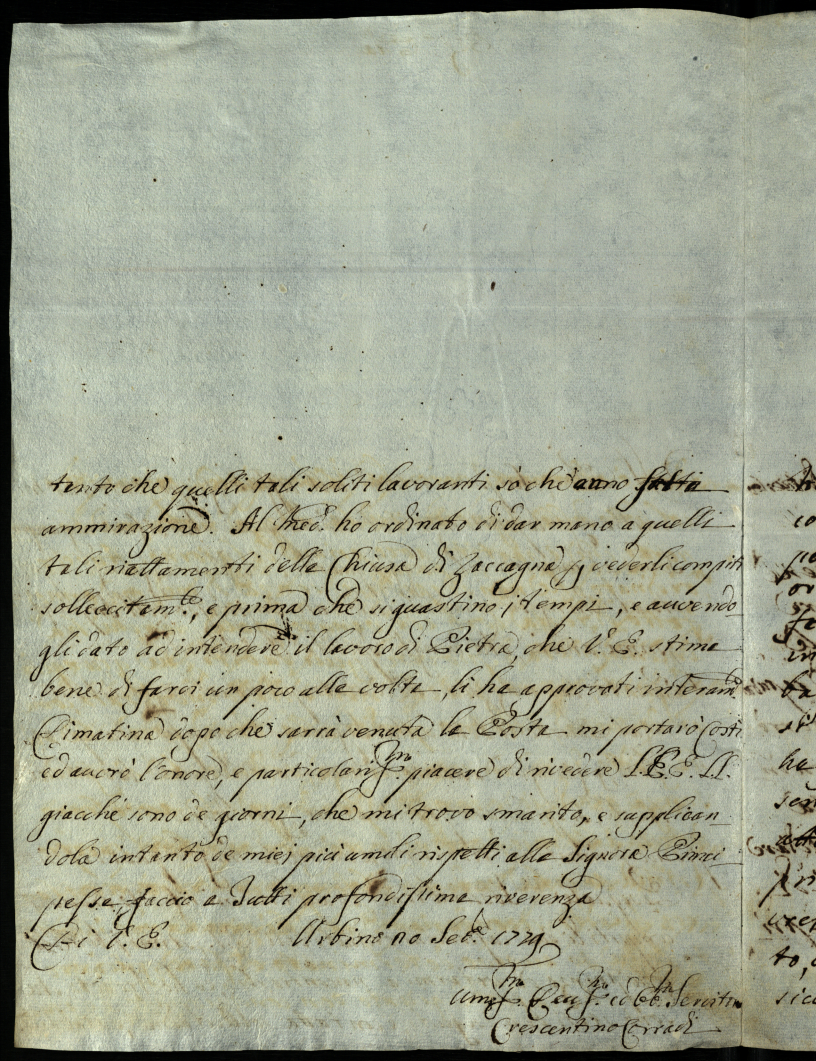 tanto che quelli tali soliti lavoranti sò che anno fatta
ammirazione. Al Med.º ho ordinato di dar mano a quelli
tali riattamenti della Chiusa di Zaccagna p vederli compiti
sollecitam.e, e prima che si guastino i tempi, e auvendo
gli dato ad intendere il lavoro di Pietra, che V. E. stima
bene di farci un poco alle volte, li ha approvati interam.e
Dimatina dopo che sarrà venuta la Posta mi portarò costi
ed auerò l'onore, e particolariss.mo piacere di rivedere LL. EE. LL.
giacché sono de giorni, che mi trovo smarito, e supplican
dola intanto de miei più umili rispetti alla Signora Princi
pessa, faccio a Tutti profondissima riverenza
Di V. E. Urbino 20 Seb.e 1779
Umiss.mo Dev.mo ed Obb.mo Servito
Crescentino Corradi